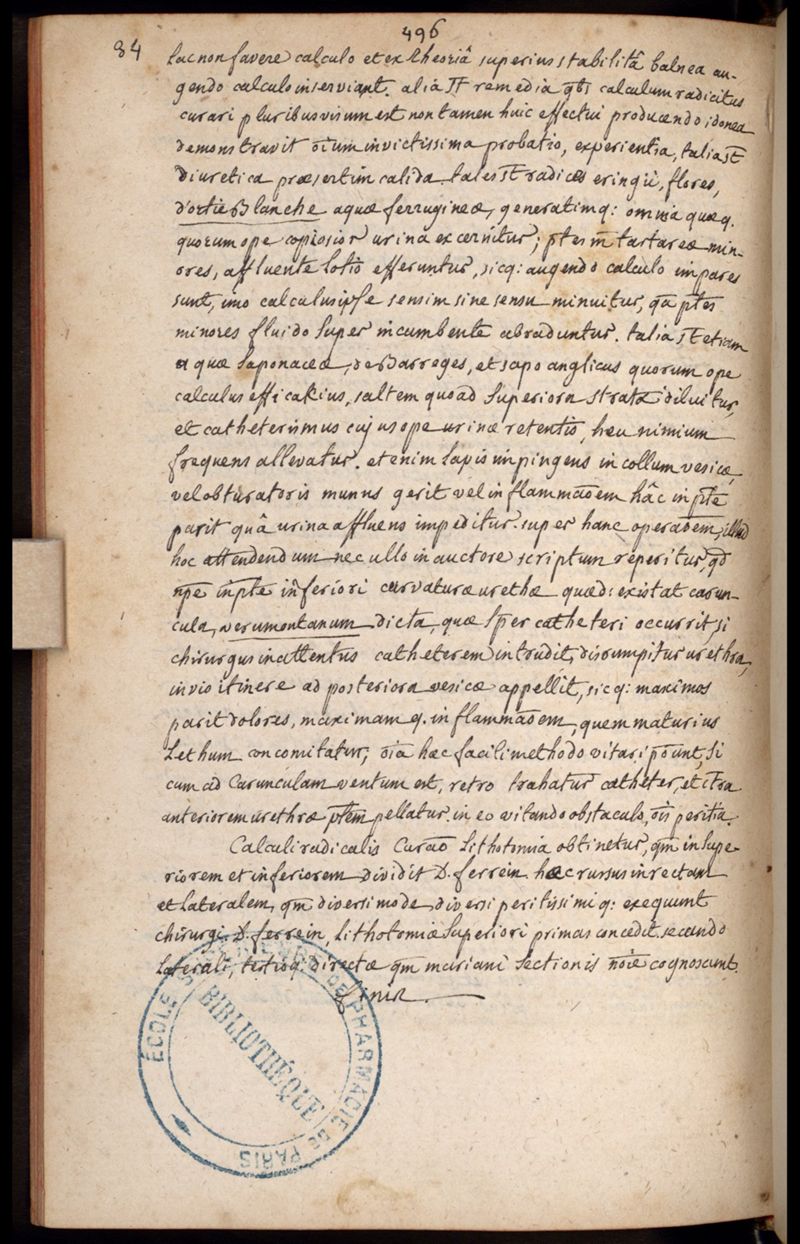 496
84
Lac non favere calculo et ex theoriâ superius stabilitâ balnea au-
gendo calculo inserviant. alia st remedia qbs calculum radicitus
curari pluribus visum est non tamen huic effectui producendo idonea
demonstravit oium invictissima probatio, experientia, talia st
diuretica præsertim calida. tales st radices eringii, flores,
d'ortie Blanche aquæ ferrugineæ, generatimq: omnia quæq.
quorum ope copiosior urina excernitur; ptes m tartareæ min-
ores, affluente lotio efferuntur, sicq: augendo calculo impares
sunt, imo calculus ipse sensim sine sensu minuitur, qa ptes
minores fluido super incumbente abraduntur. talia st etiam
aquæ saponaceæ, de Barreges, et sapo anglicus quorum ope
calculus efficakius, saltem quoad superiora strata diluitur,
et catheterismus cujus ope urinæ retentio, heu nimium
frequens allevatur. etenim lapis impingens in collum vesicæ,
vel obturatoris munus gerit vel inflammaoem hâc in pte
parit quâ urina affluens impeditur. super hanc operaoem, illud
hoc attendendum nec ullo in auctore scriptum reperitur, qd
npe in pte inferiori curvaturæ urethæ quæd: existat carun-
cula, verumontanum dicta, quæ sper catheteri occurrit, si
chirurgus inattentus catheterem intrudit, disrumpitur urethra,
invio itinere ad posteriora vesicæ appellit, sicq: maximos
parit dolores, maximamq. inflammaoem, quem maturius
Lethum concomitatur; oia hæc facili methodo vitari pount, si
cum ad Carunculam ventum est, retro trahatur catheter, et ctra
anteriorem urethræ ptem pellatur. in eo vitando obstaculo, ois peritia.
Calculi radicalis Curao Lithotomia obtinetur, qm in supe-
riorem et inferiorem dividit D. ferrein. hæc rursus in rectam
et Lateralem, qm diversimode diversi peritissimiq: exequunt
chirurgi. D. ferrein, Lithotomiæ Superiori primas concedit, secundo
Laterali, tertioq: directæ qm mariani sectionis noie cognoscunt.
Finis.
ÉCOLE DE PHARMACIE DE PARIS
BIBLIOTHÈQUE